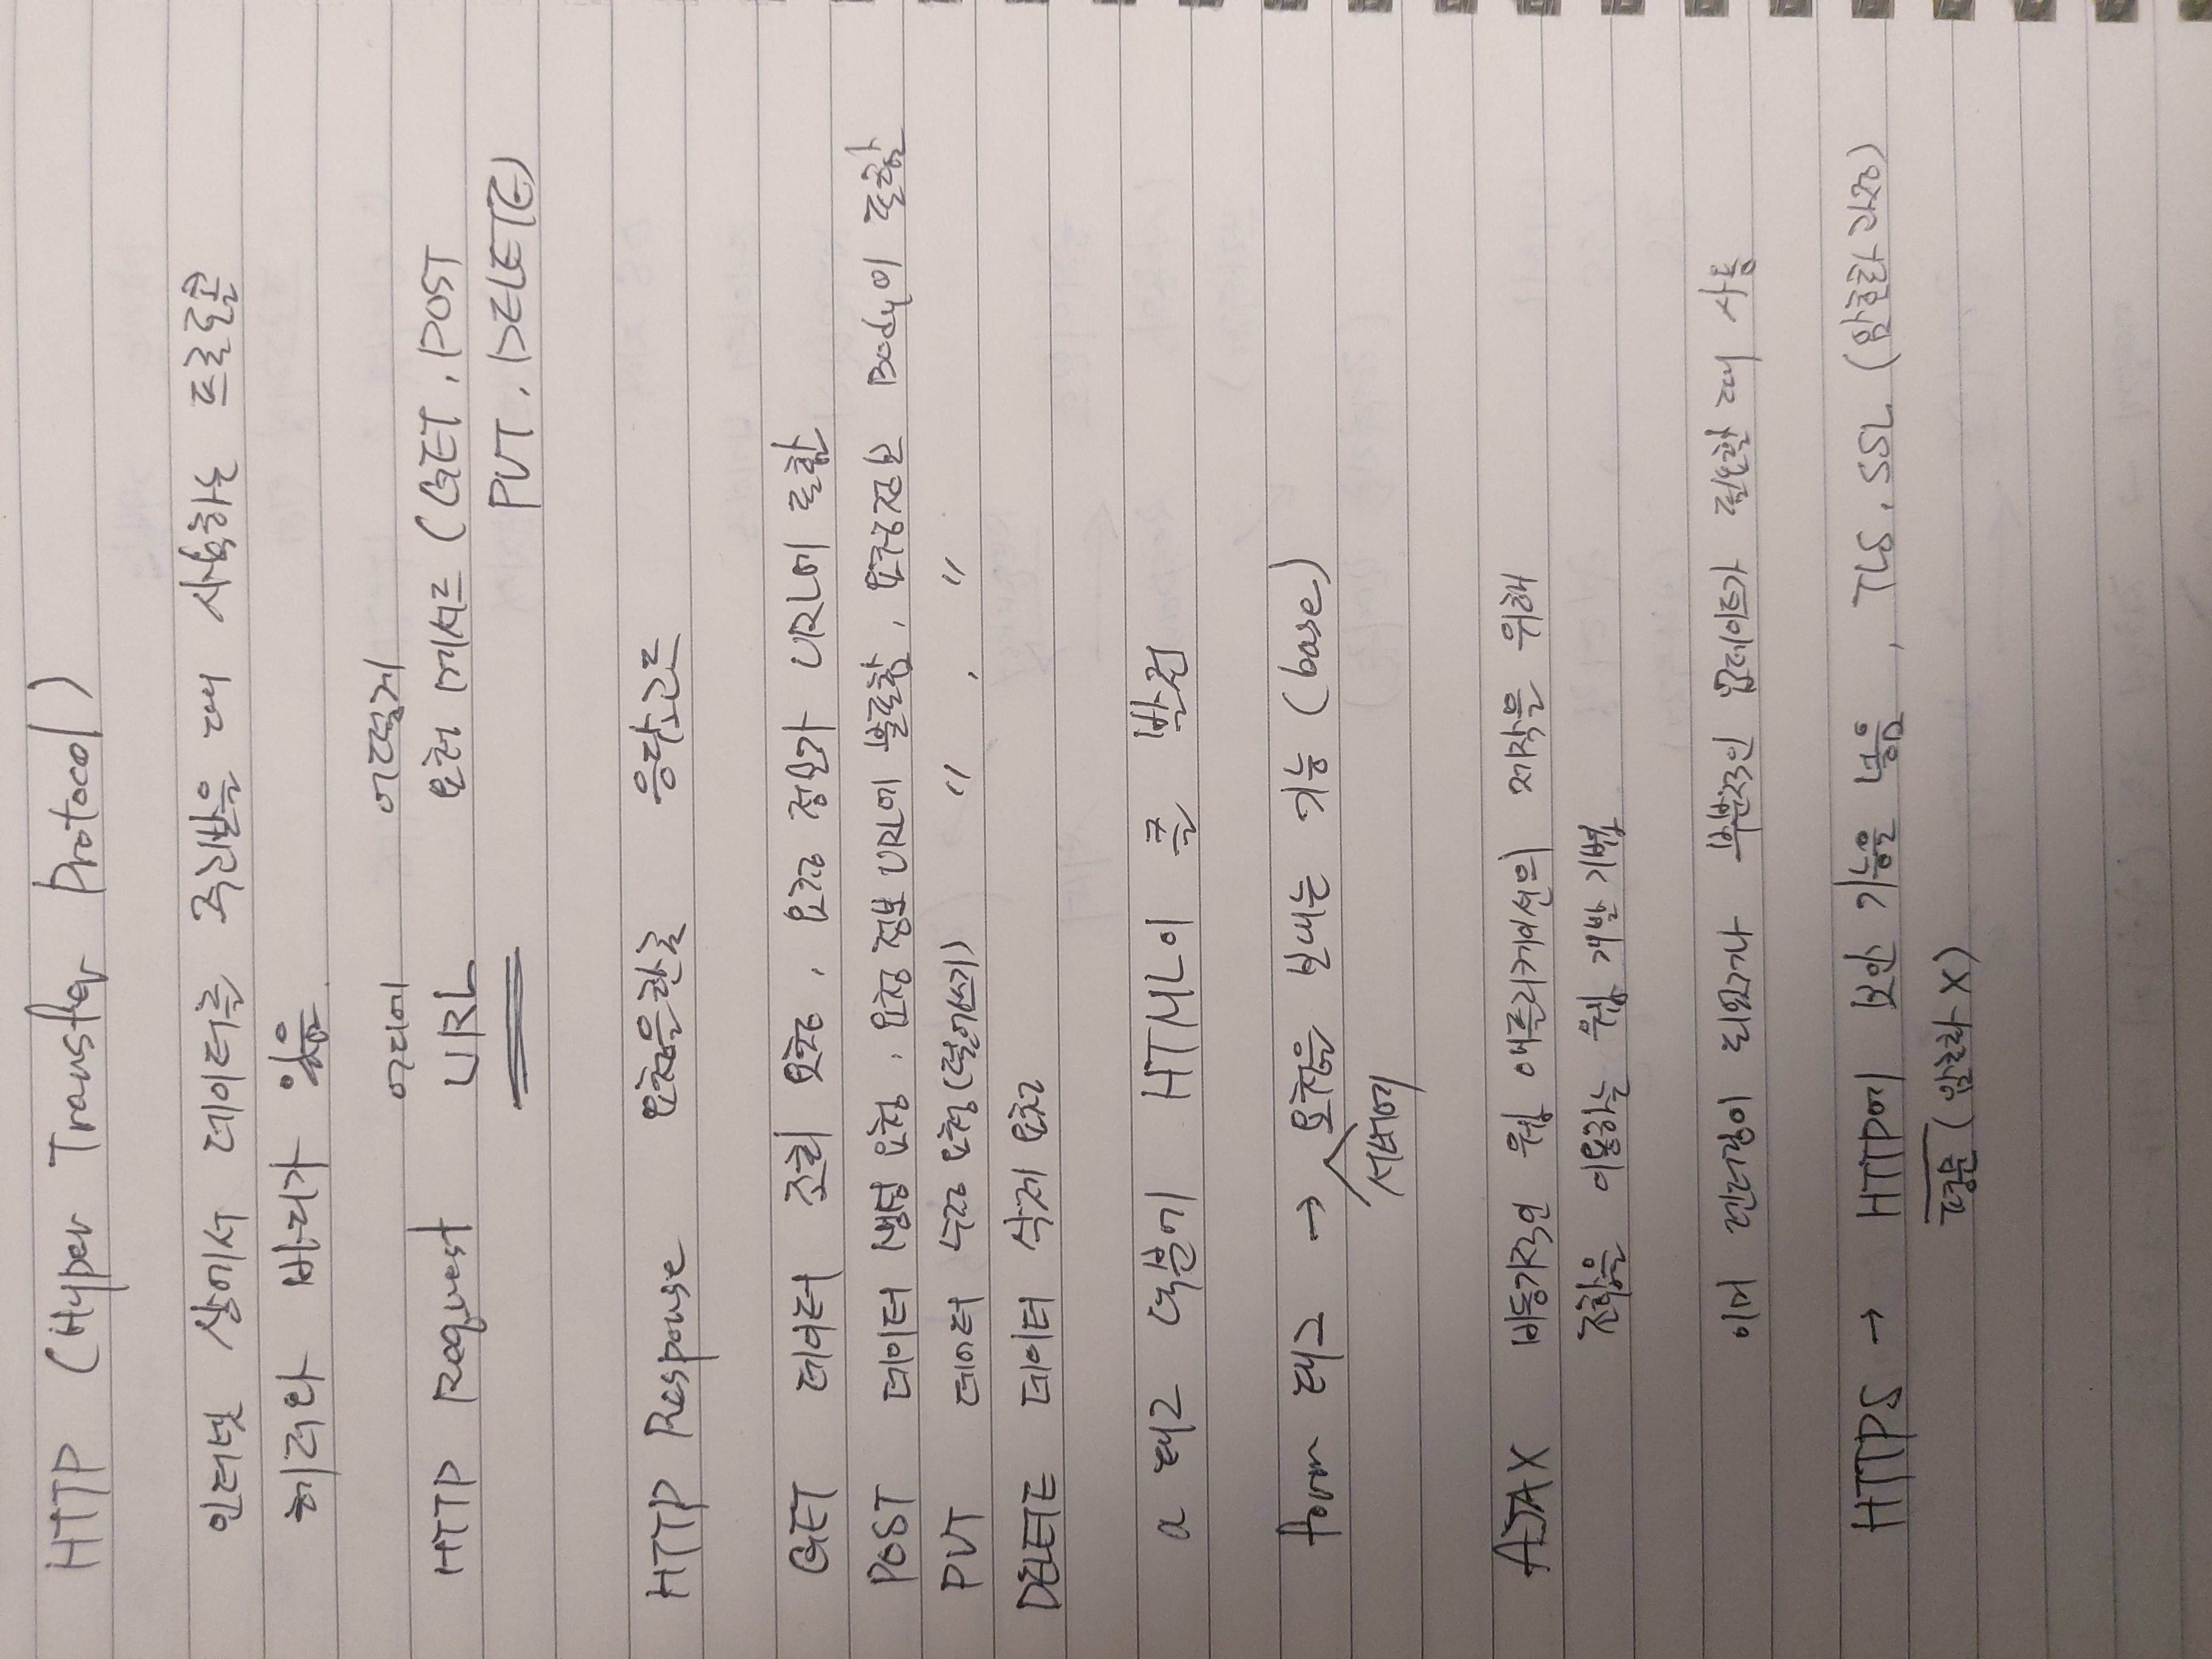 HTTP (Hyper Transfer Protocol)
인터넷 상에서 데이터를 주고받을 때 사용하는 프로토콜
헤더와 바디가 있음
어디에 어떻게
HTTP Request URL 요청 메서드 (GET, POST
PUT, DELETE)
HTTP Response 요청을한곳 응답코드
GET 데이터 조회 요청, 요청 정보가 URL에 포함
POST 데이터 생성 요청, 요청 정보 URL에 불포함, 요청정보 Body에 포함
PUT 데이터 수정 요청(덮어쓰기) 〃 , 〃
DELETE 데이터 삭제 요청
a 태그 덕분에 HTML이 큰 발전
form 태그 → 요청을 보내는 기능 (base)
서버에
AJAX 비동기적인 웹 애플리케이션의 제작을 위해
조합을 이용하는 웹 개발 기법
이미 렌더링이 되었거나 부분적인 업데이트가 필요할 때 사용
HTTPS → HTTP에 보안 기능을 넣음, TLS, SSL (암호화 과정)
평문 (암호화 X)